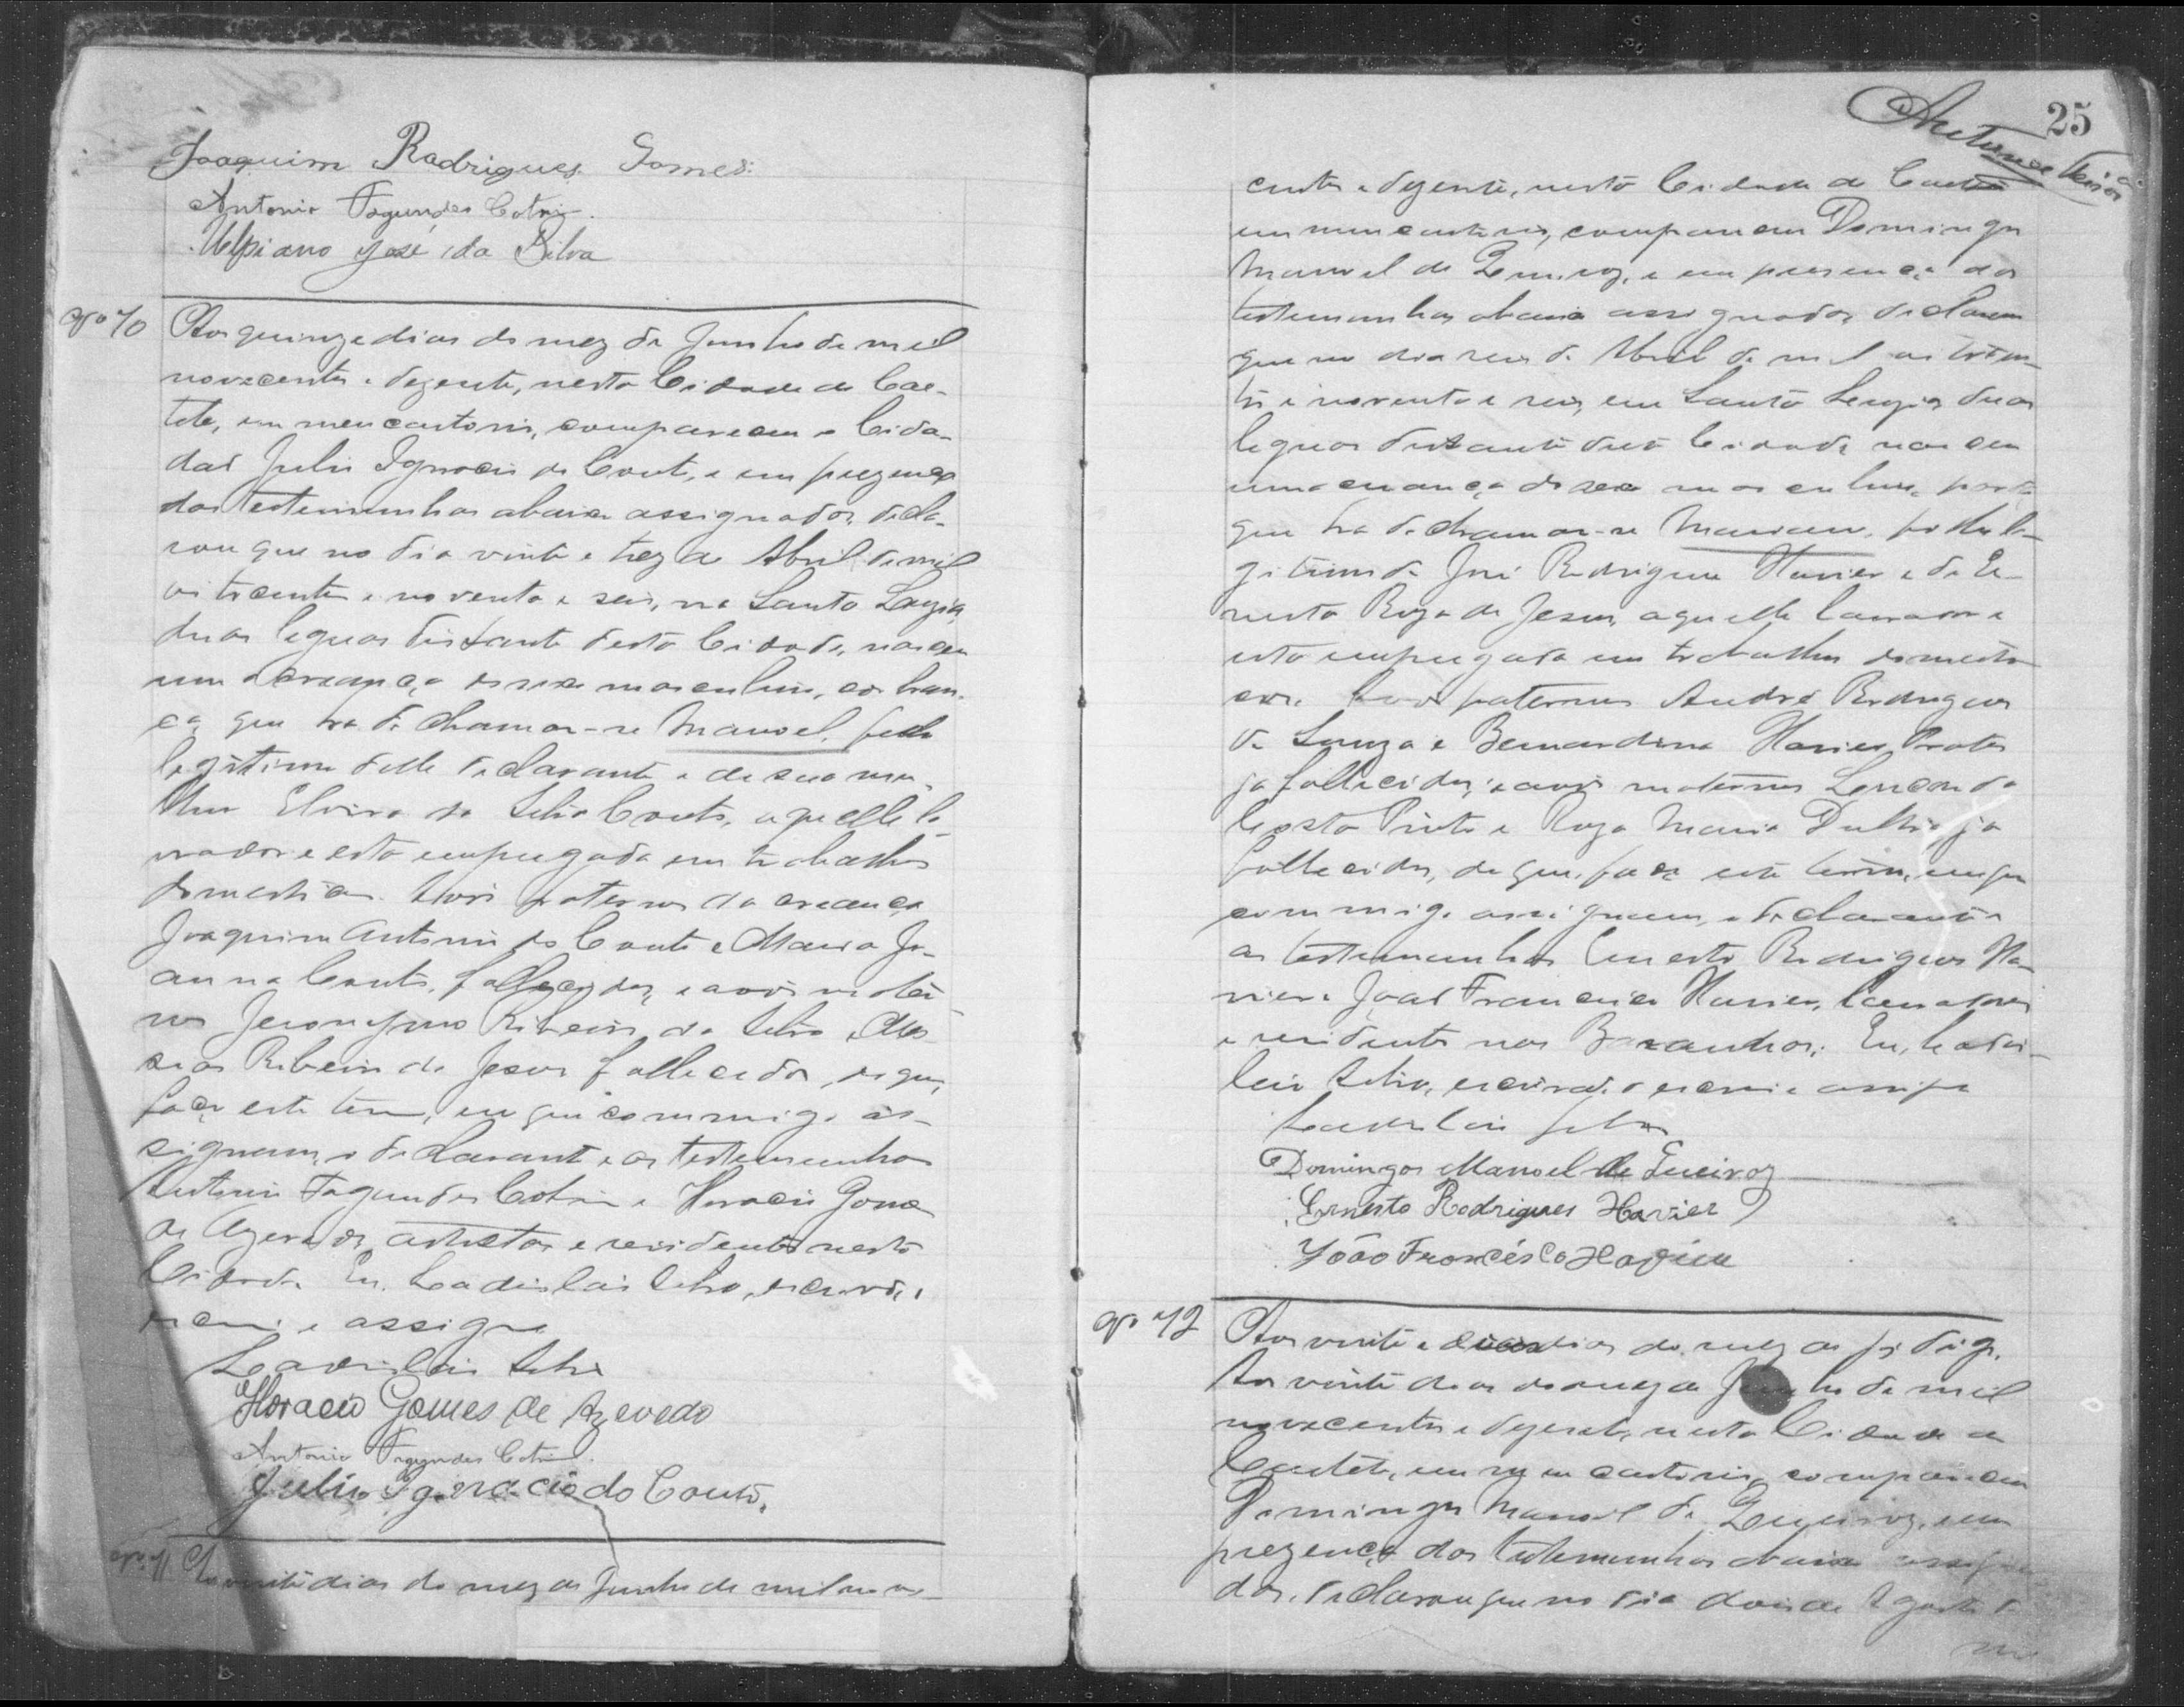 Joaquim Rodrigues Gomes
Antonio Fagundes Cotrim
Ulpiano José da Silva
Nº 70 Aos quinze dias do mez de Junho de mil
novecentos e dezesete, nesta Cidade de Cae-
tité, em meu cartorio, compareceu o Cida-
dão Julio Ignacio do Couto, e em prezença
das testemunhas abaixo assignadas, decla-
rou que no dia vinte e trez de Abril de mil
oitocentos e noventa e seis, na Santa Luzia,
duas leguas distante desta Cidade, nasceu
uma creança de sexo masculino, cor bran-
ca, que ha de chamar-se Manoel, filho
legitimo delle declarante e de sua mu-
lher Elvira da Silva Couto, aquelle la-
vrador e esta empregada em trabalhos
domesticos. Avós paternos da creança
Joaquim Antonio do Couto e Maria Jo-
anna Couto, fallecidos, e avós mater-
nos Jeronymo Ribeiro da Silva e
Ribeiro de Jesus fallecidos, de que,
faço este termo, em que commigo as-
signam, o declarante e as testemunhas
Antonio Fagundes Cotrim e Horacio Gomes
de Azevedo, artistas e residentes nesta
Cidade. Eu, Ladislau Silva, escrivão, o
escrevi e assigno
Ladislau Silva
Horacio Gomes de Azevedo
Antonio Fagundes Cotrim
Julio Ignacio do Couto.
Nº 71 Aos vinte dias do mez de Junho de mil nove-
25
centos e dezesete, nesta Cidade de Caetité
em meu cartorio, compareceu Domingos
Manoel de Queiroz, e em presença das
testemunhas abaixo assignadas, declarou
que no dia seis de Abril de mil oitocen-
tos e noventa e seis, em Santa Luzia, duas
leguas distante desta Cidade nasceu
uma creança de sexo masculino, parda
que ha de chamar-se Mariano, filho le-
gitimo de José Rodrigues Xavier e de Er-
nesta Roza de Jesus, aquelle lavrador e
esta empregada em trabalhos domesti-
cos. Avós paternos André Rodrigues
de Souza e Bernardina Xavier Prates
já fallecidos, e avós maternos
Costa Pinto e Roza Maria já
fallecidos, de que, faço este termo, em que
commigo assignam, o declarante e
as testemunhas Ernesto Rodrigues Xa-
vier e João Francisco Xavier, lavradores
e residentes nos Eu, Ladis-
lau Silva, escrivão, o escrevi e assigno
Ladislau Silva
Domingos Manoel de Queiroz
Ernesto Rodrigues Xavier
João Francisco Xavier
Nº 72 Aos vinte e dias do mez de digo,
Aos vinte dias do mez de Junho de mil
novecentos e dezesete, nesta Cidade de
Caetité, em meu cartorio, compareceu
Domingos Manoel de Queiroz, e em
prezença das testemunhas abaixo assigna-
das, declarou que no dia dois de Agosto de